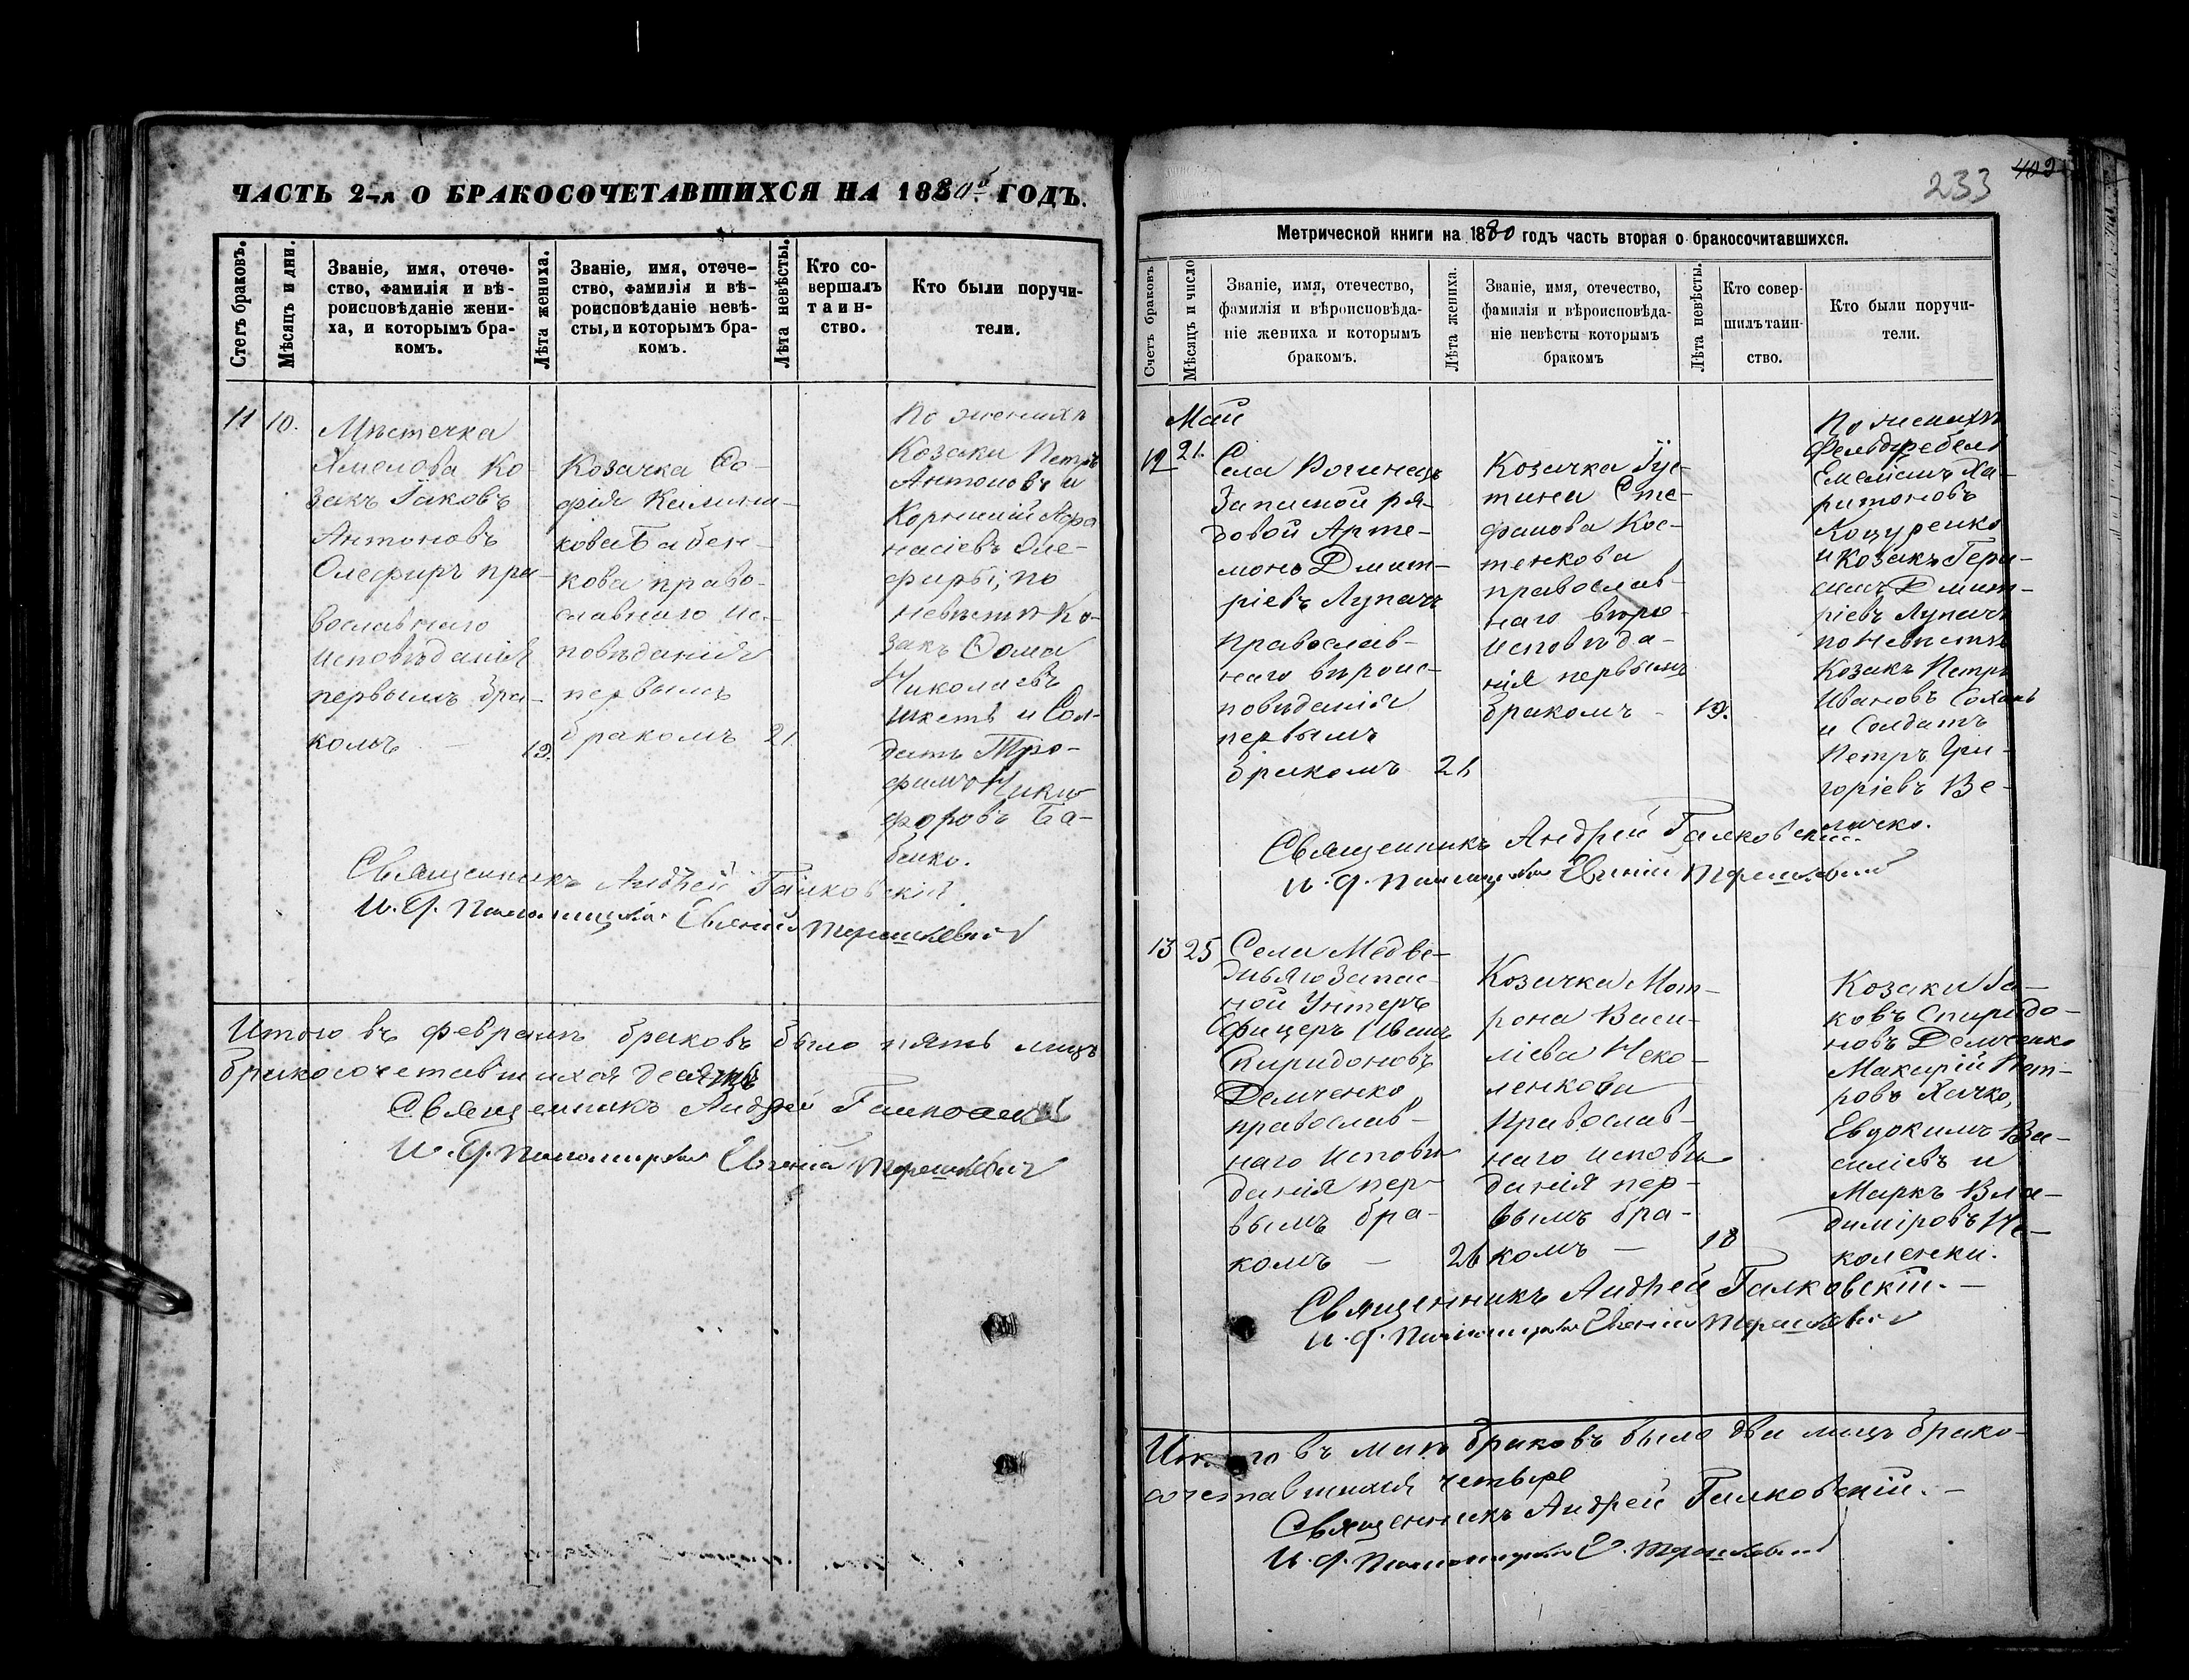 ЧАСТЬ 2-я О БРАКОСОЧЕТАВШИХСЯ НА 1880й ГОДЪ.
Стетъ браковъ.
Мѣсяцъ и дни.
Званіе, имя, отече-
ство, фамилія и вѣ-
роисповѣданіе жени-
ха, и которымъ бра-
комъ.
Лѣта жениха.
Званіе, имя, отече-
ство, фамилія и вѣ-
роисповѣданіе невѣ-
сты, и которымъ бра-
комъ.
Лѣта невѣсты.
Кто со-
вершалъ
таин-
ство.
Кто были поручи-
тели.
11
10.
Мѣстечка
Ко-
закъ Іаковъ
Антоновъ
Олефиръ пра-
вославнаго
исповѣданія
первымъ бра-
комъ —
19.
Козачка Со-
фія Калини-
кова Бабен-
кова право-
славнаго ис-
повѣданія
первымъ
бракомъ
21
По женихѣ
Козаки Петръ
Антоновъ и
Корнилій Афа-
насіевъ Оле-
фиры, по
невѣстѣ Ко-
закъ Ѳома
Николаевъ
и Сол-
датъ Тро-
фимъ Ники-
форовъ Ба-
бенко.
Священникъ Андрей Галковскій.
И. д. Евгеній
Итого въ февралѣ браковъ было пять лицъ
бракосочетавшихся десять
Священникъ Андрей Галковскій
И. д. Евгеній
233
402
Метрической книги на 1880 годъ часть вторая о бракосочитавшихся.
Счетъ браковъ
Мѣсяцъ и число
Званіе, имя, отечество,
фамилія и вѣроисповѣда-
ніе жениха и которымъ
бракомъ.
Лѣта жениха.
Званіе, имя, отечество,
фамилія и вѣроисповѣда-
ніе невѣсты которымъ
бракомъ
Лѣта невѣсты.
Кто совер-
шилъ таин-
ство.
Кто были поручи-
тели.
Май
12
21.
Села Рогинецъ
Запасной ря-
довой Арте-
монъ Дмит-
ріевъ Лупачъ
православ-
наго вѣроис-
повѣданія
первымъ
бракомъ
Козачка Іус-
тина Сте-
фанова Кос-
тенкова
православ-
наго вѣро-
исповѣда-
нія первымъ
бракомъ —
19.
По женихѣ
Фельдфебель
Емеліанъ Ха-
ритоновъ
Коцуренко
и Козакъ Гера-
симъ Дмит-
ріевъ Лупачъ
по невѣстѣ
Козакъ Петръ
Ивановъ
и Солдатъ
Петръ Гри-
горіевъ Ве-
личко.
Священникъ Андрей Галковскій.
И. д. Евгеній
13
25
Села Медве-
жьяго Запас-
ной Унтеръ
Офицеръ Иванъ
Спиридоновъ
Демченко
православ-
наго исповѣ-
данія пер-
вымъ бра-
комъ —
26
Козачка Мот-
рона Васи-
ліева Неко-
ленкова
Православ-
наго исповѣ-
данія пер-
вымъ бра-
комъ —
18
Козаки Іа-
ковъ Спиридо-
новъ Демченко
Макарій Пет-
ровъ Хачко,
Евдокимъ Ва-
силіевъ и
Маркъ Вла-
диміровъ Не-
коленки.
Священникъ Андрей Галковскій. —
И. д. Евгеній
Итого въ маѣ браковъ было два лицъ брако-
сочетавшихся четыре
Священникъ Андрей Галковскій. —
И. д. Е.